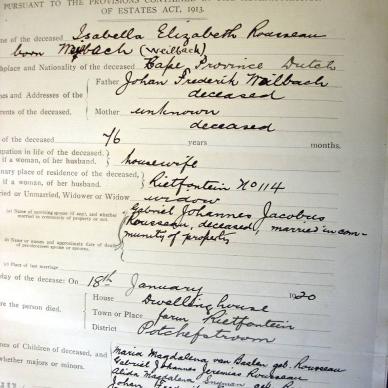 PURSUANT TO THE PROVISIONS CONTAINED
OF ESTATES ACT, 1913.
me of the deceased Isabella Elizabeth Rousseau
born (Weilbach)
hplace and Nationality of the deceased Cape Province Dutch
Father Johan Frederik Weilbach
mes and Addresses of the deceased
rents of the deceased. Mother unknown
deceased
of the deceased, 76 years months.
upation in life of the deceased, housewife
if a woman, of her husband.
inary place of residence of the deceased, Rietfontein No 114
if a woman, of her husband.
rried or Unmarried, Widower or Widow widow
(a) Name of surviving spouse (if any), and whether Gabriel Johannes Jacobus
married in community of property or not. Rousseau, deceased, married in com-
munity of property
(b) Name or names and approximate date of death
of pre-deceased spouse or spouses.
(c) Place of last marriage
day of the decease: On 18th January 1920
House Dwelling house
ere the person died. Town or Place farm Rietfontein
District Potchefstroom
mes of Children of deceased, and Maria Magdalena van gob. Rousseau
whether majors or minors. Gabriel Johannes Jeremias Rousseau
Alida Magdalena Snyman gob.
Johan